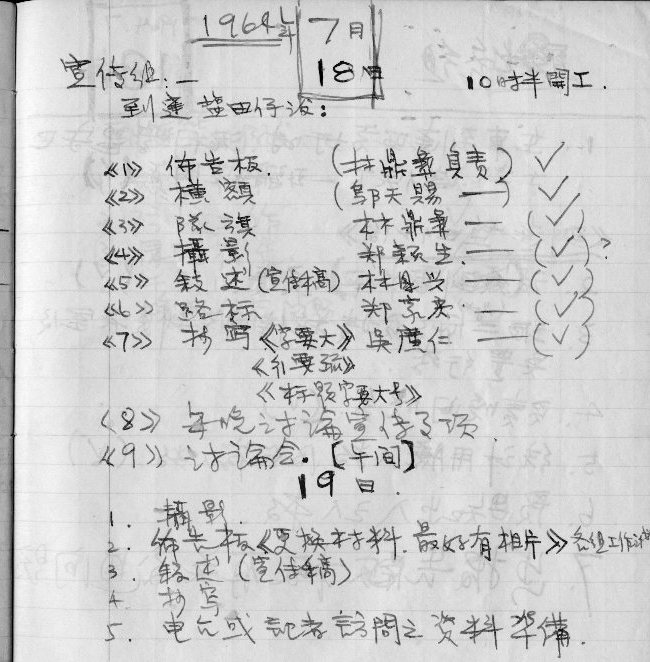 1964年 7月
18日
宣传組:— 10时半開工.
到達 盐田仔後:
《1》 佈告板. (林鼎彝負責) ✓
《2》 横額 (鄔天賜 —) ✓
《3》 隊旗 林鼎彝 — (✓)
《4》 攝影 郑 生. — (✓)?
《5》 敍述 (宣传稿) 林 兴 — (✓)
《6》 路标 郑 — (✓)
《7》 抄写 《字要大》 吳 仁 — (✓)
《行要疏》
《标题字要大号》
《8》 每晚讨論宣传事項
《9》 讨論会. [午间]
19日.
1. 攝影.
2. 佈告板《更换材料. 最好有相片》各組工作
3. 敍述 (宣传稿)
4. 抄写
5. 电台或記者訪問之資料準備.